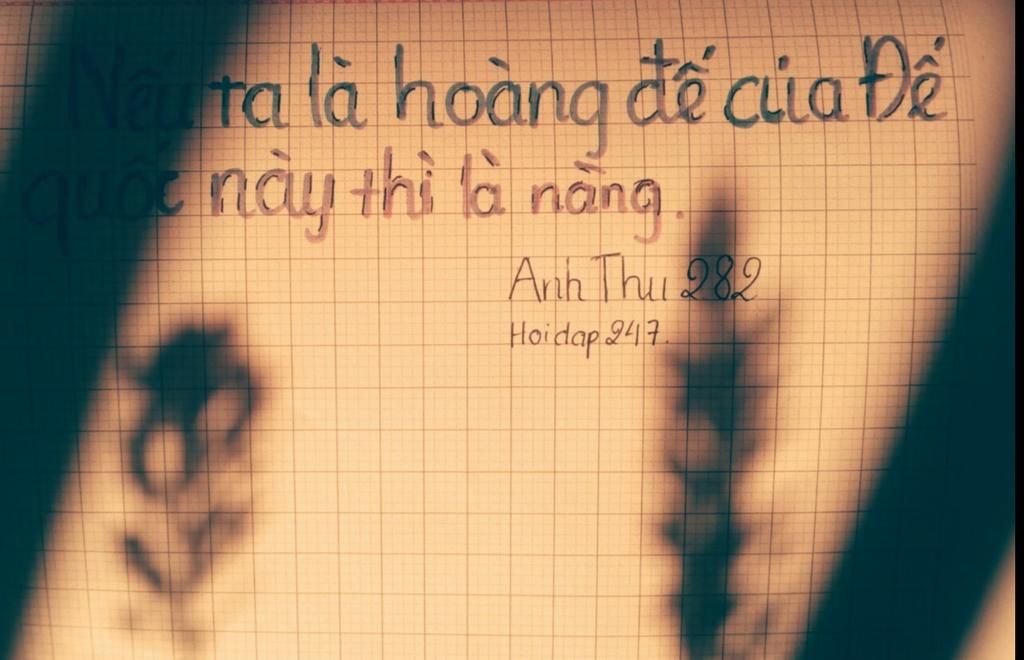 Nếu ta là hoàng đế của Đế
quốc này thì là nằng.
Anh Thu 282
Hoidap 247.